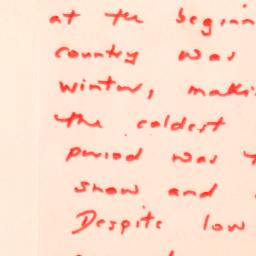 at the beginn
country was
winter, maki
the coldest
period was t
snow and
Despite low